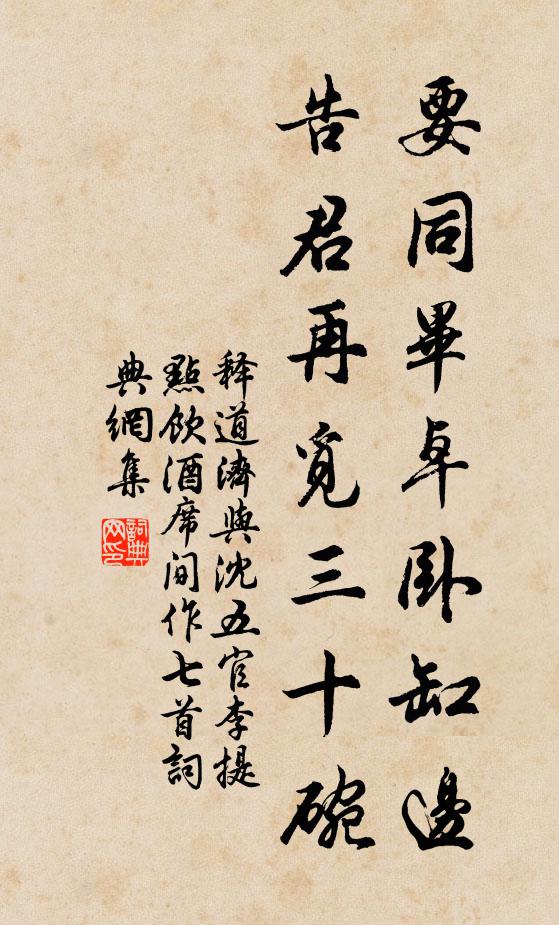 要同畢卓臥缸邊
告君再覓三十碗
釋道濟與沈五官李提
點飲酒席間作七首詞
典網集
詞典網印